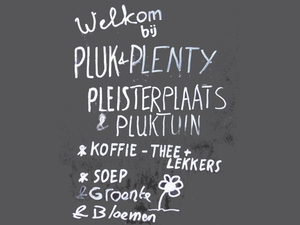 Welkom
bij
PLUK & PLENTY
PLEISTERPLAATS
& PLUKTUIN
* KOFFIE - THEE +
LEKKERS
* SOEP
& Groente
& Bloemen